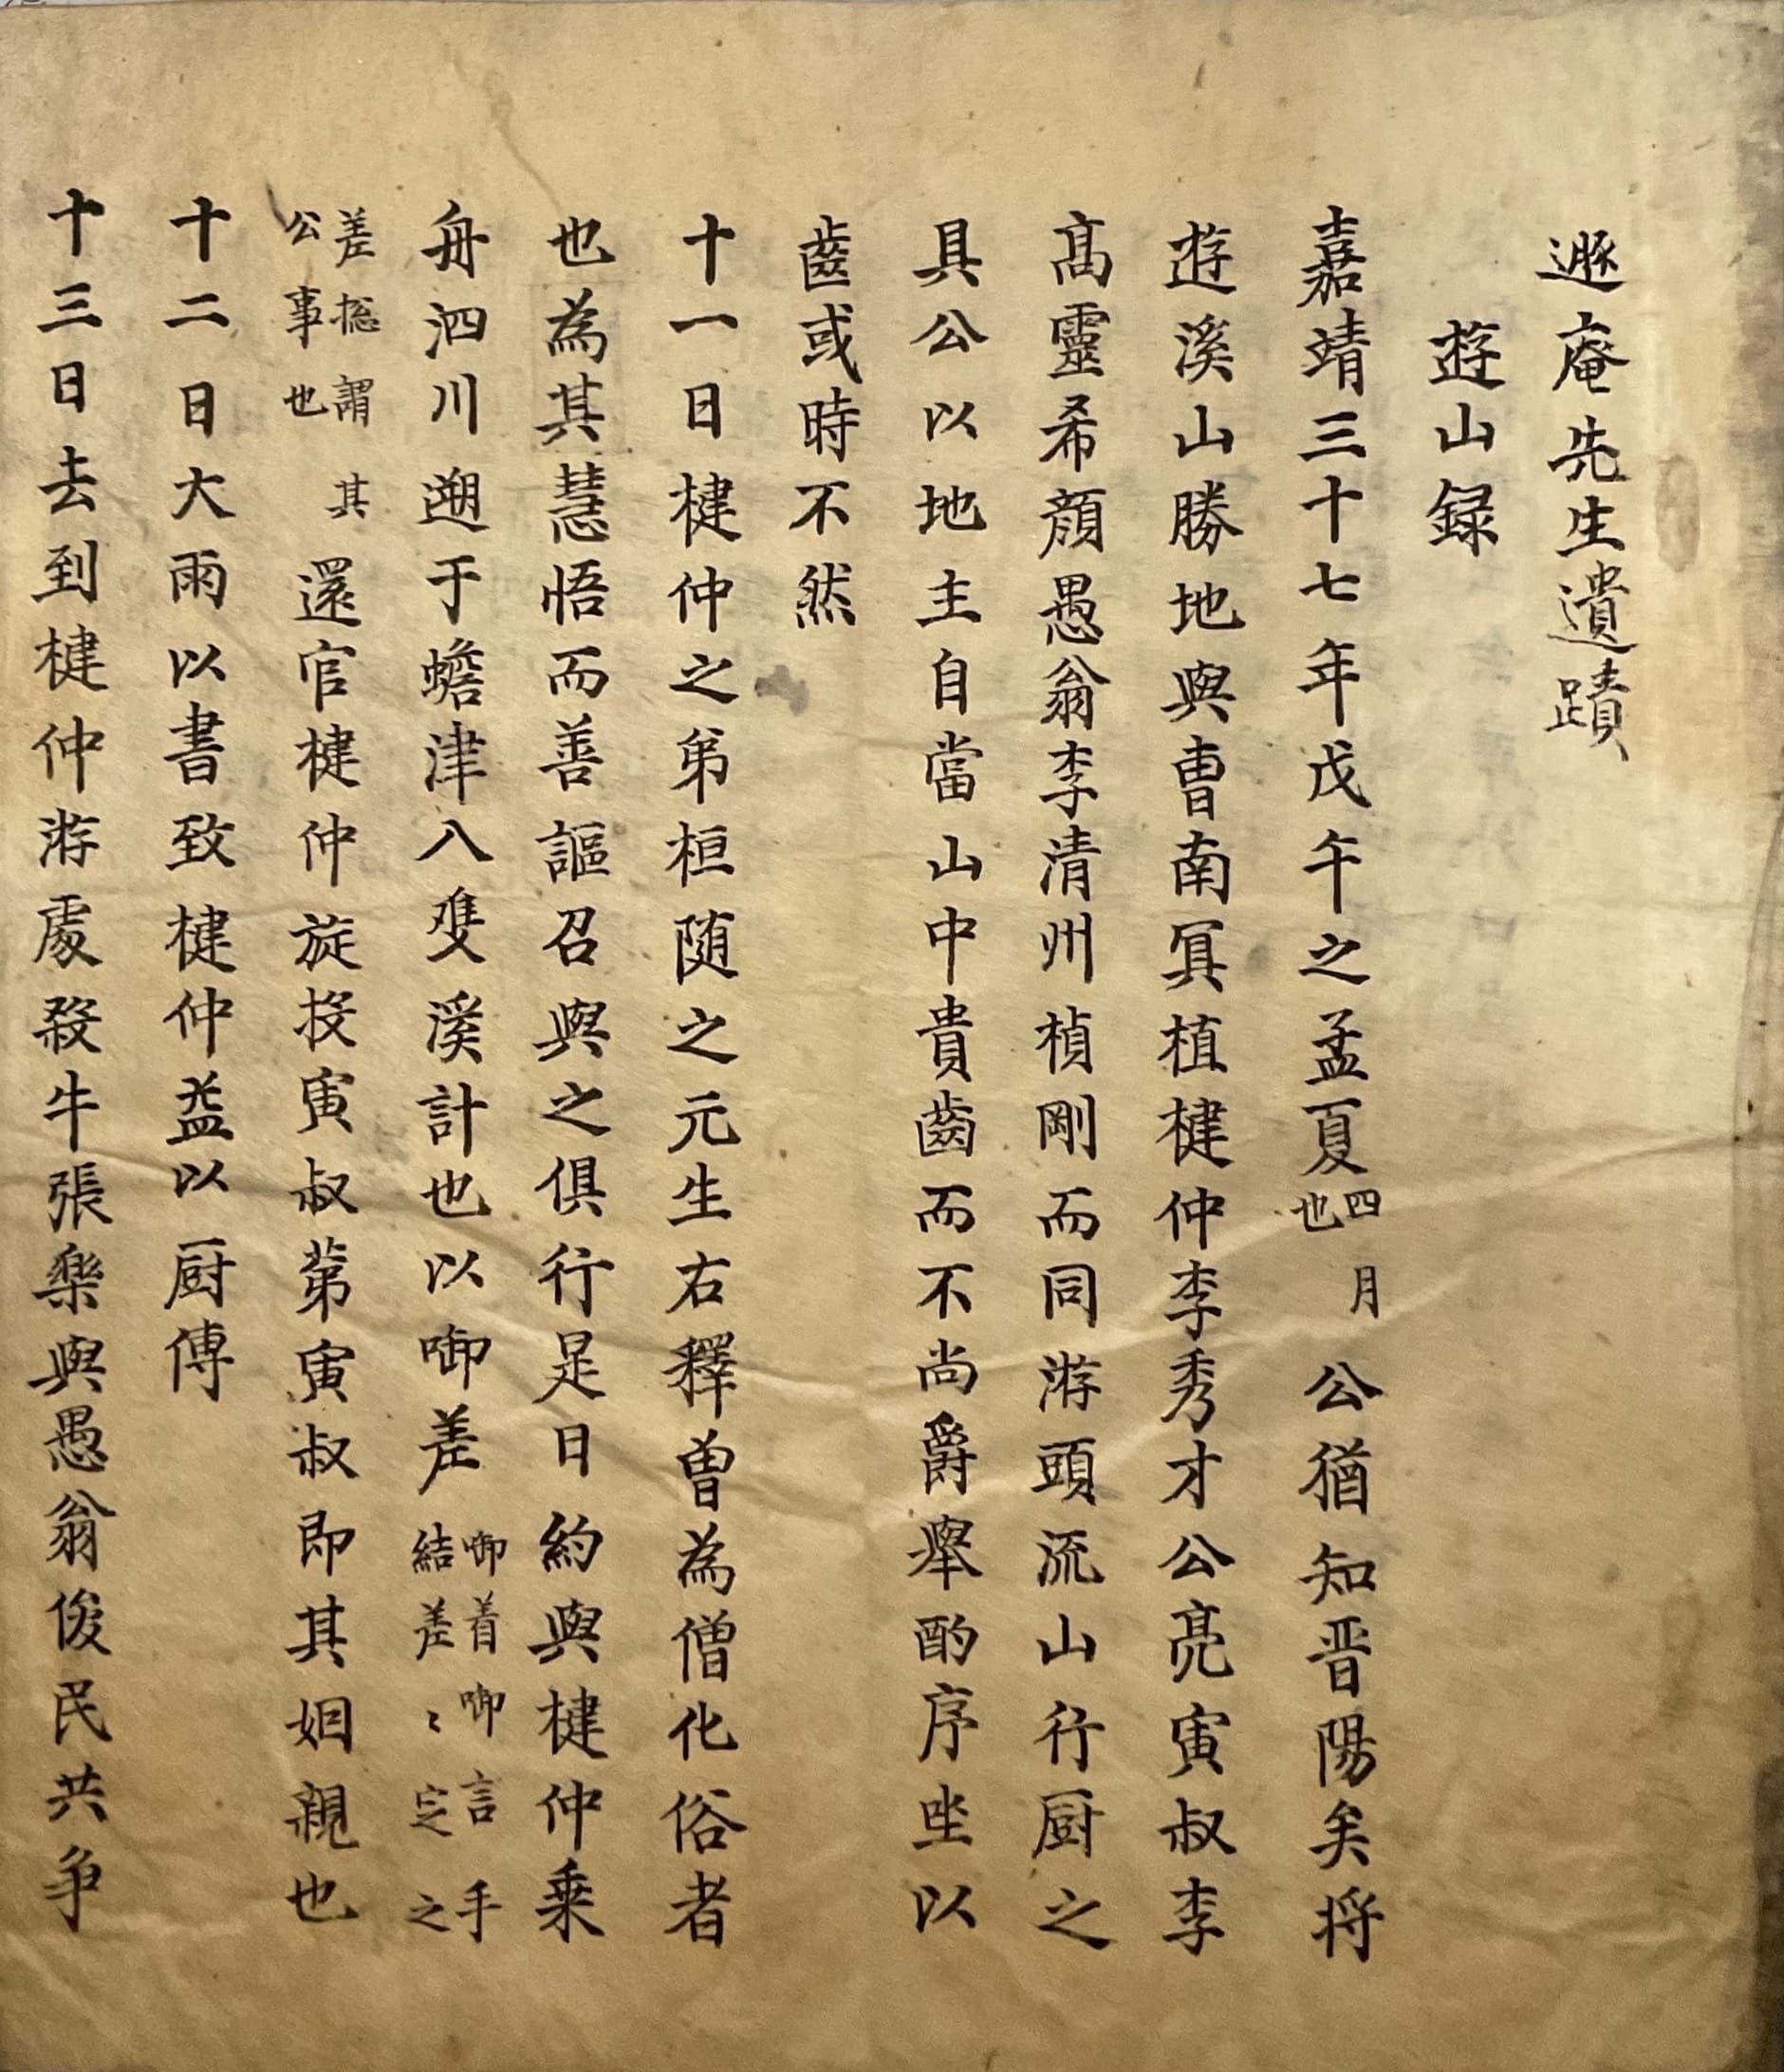 遯庵先生遺蹟
遊山録
嘉靖三十七年戊午之孟夏四月也公猶知晋陽矣将
遊溪山勝地與曺南冥植楗仲李秀才公亮寅叔李
髙靈希顔愚翁李清州楨剛而同游頭流山行厨之
具公以地主自當山中貴齒而不尚爵舉酌序坐以
齒或時不然
十一日楗仲之弟桓随之元生右釋曽為僧化俗者
也為其慧悟而善謳召與之俱行是日約與楗仲乗
舟泗川遡于蟾津入雙溪計也以啣差啣着啣言手結差〻定之
差揔謂其公事也還官楗仲旋投寅叔第寅叔即其姻親也
十二日大雨以書致楗仲益以厨傳
十三日去到楗仲游處殺牛張樂與愚翁俊民共争